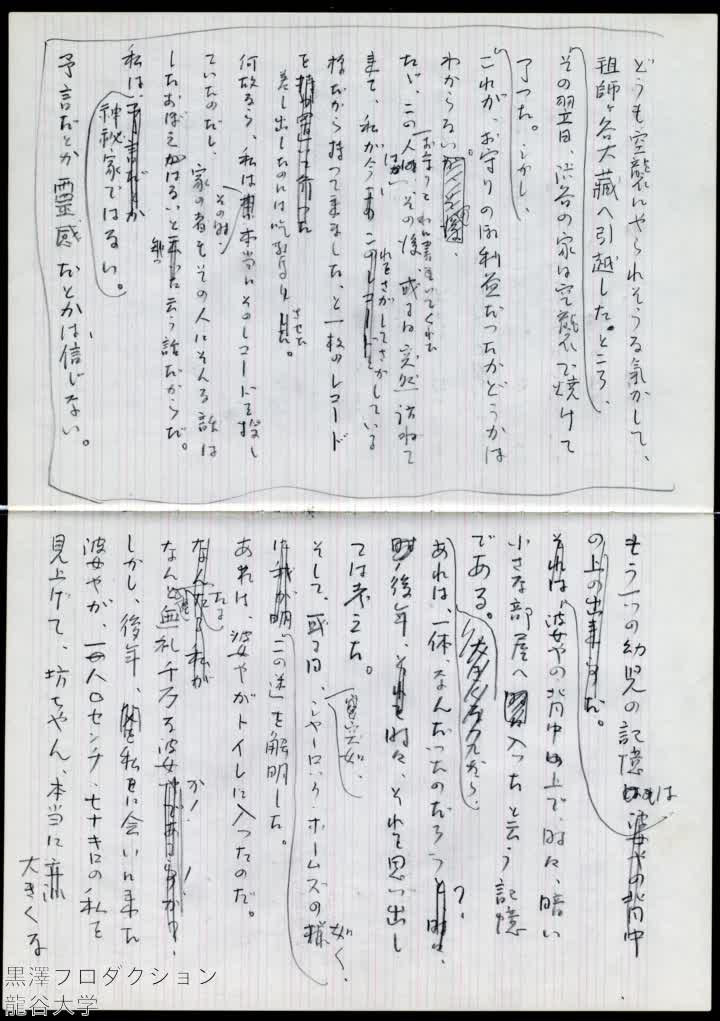 どうも空襲にやられそうな気がして、
祖師ヶ谷大蔵へ引越した。ところ、
その翌日、渋谷の家は空襲で焼けて
了った。しかし、
これが、お守りの御利益だったかどうかは
わからない。
たゞ、この人は、その後、或る日突然訪ねて
来て、私が今さがしてさがしている
様だから持って来ました、と一枚のレコード
を
差し出したのには吃驚した。
何故なら、私は本当にそのレコードを探し
ていたのだし、家の者もその人にそんな話は
したおぼえがないと云う話だからだ。
私は、
神秘家ではない。
予言だとか霊感だとかは信じない。
もう一つの幼児の記憶は
婆やの背中
の上の出来事だ。
それは、婆やの背中の上で、時々、暗い
小さな部屋へ入ったと云う記憶
である。
あれは、一体、なんだったのだろう?
後年、時々、それを思い出し
ては考えた。
そして、或る日、突如、シャーロック・ホームズの如く、
この謎を解明した。
あれは、婆やがトイレに入ったのだ。
なんと無礼千万な婆やか!
しかし、後年、私に会いに来た
婆やが、一八〇センチ・七十キロの私を
見上げて、坊ちゃん、本当に
大きくな
黒澤プロダクション
龍谷大学